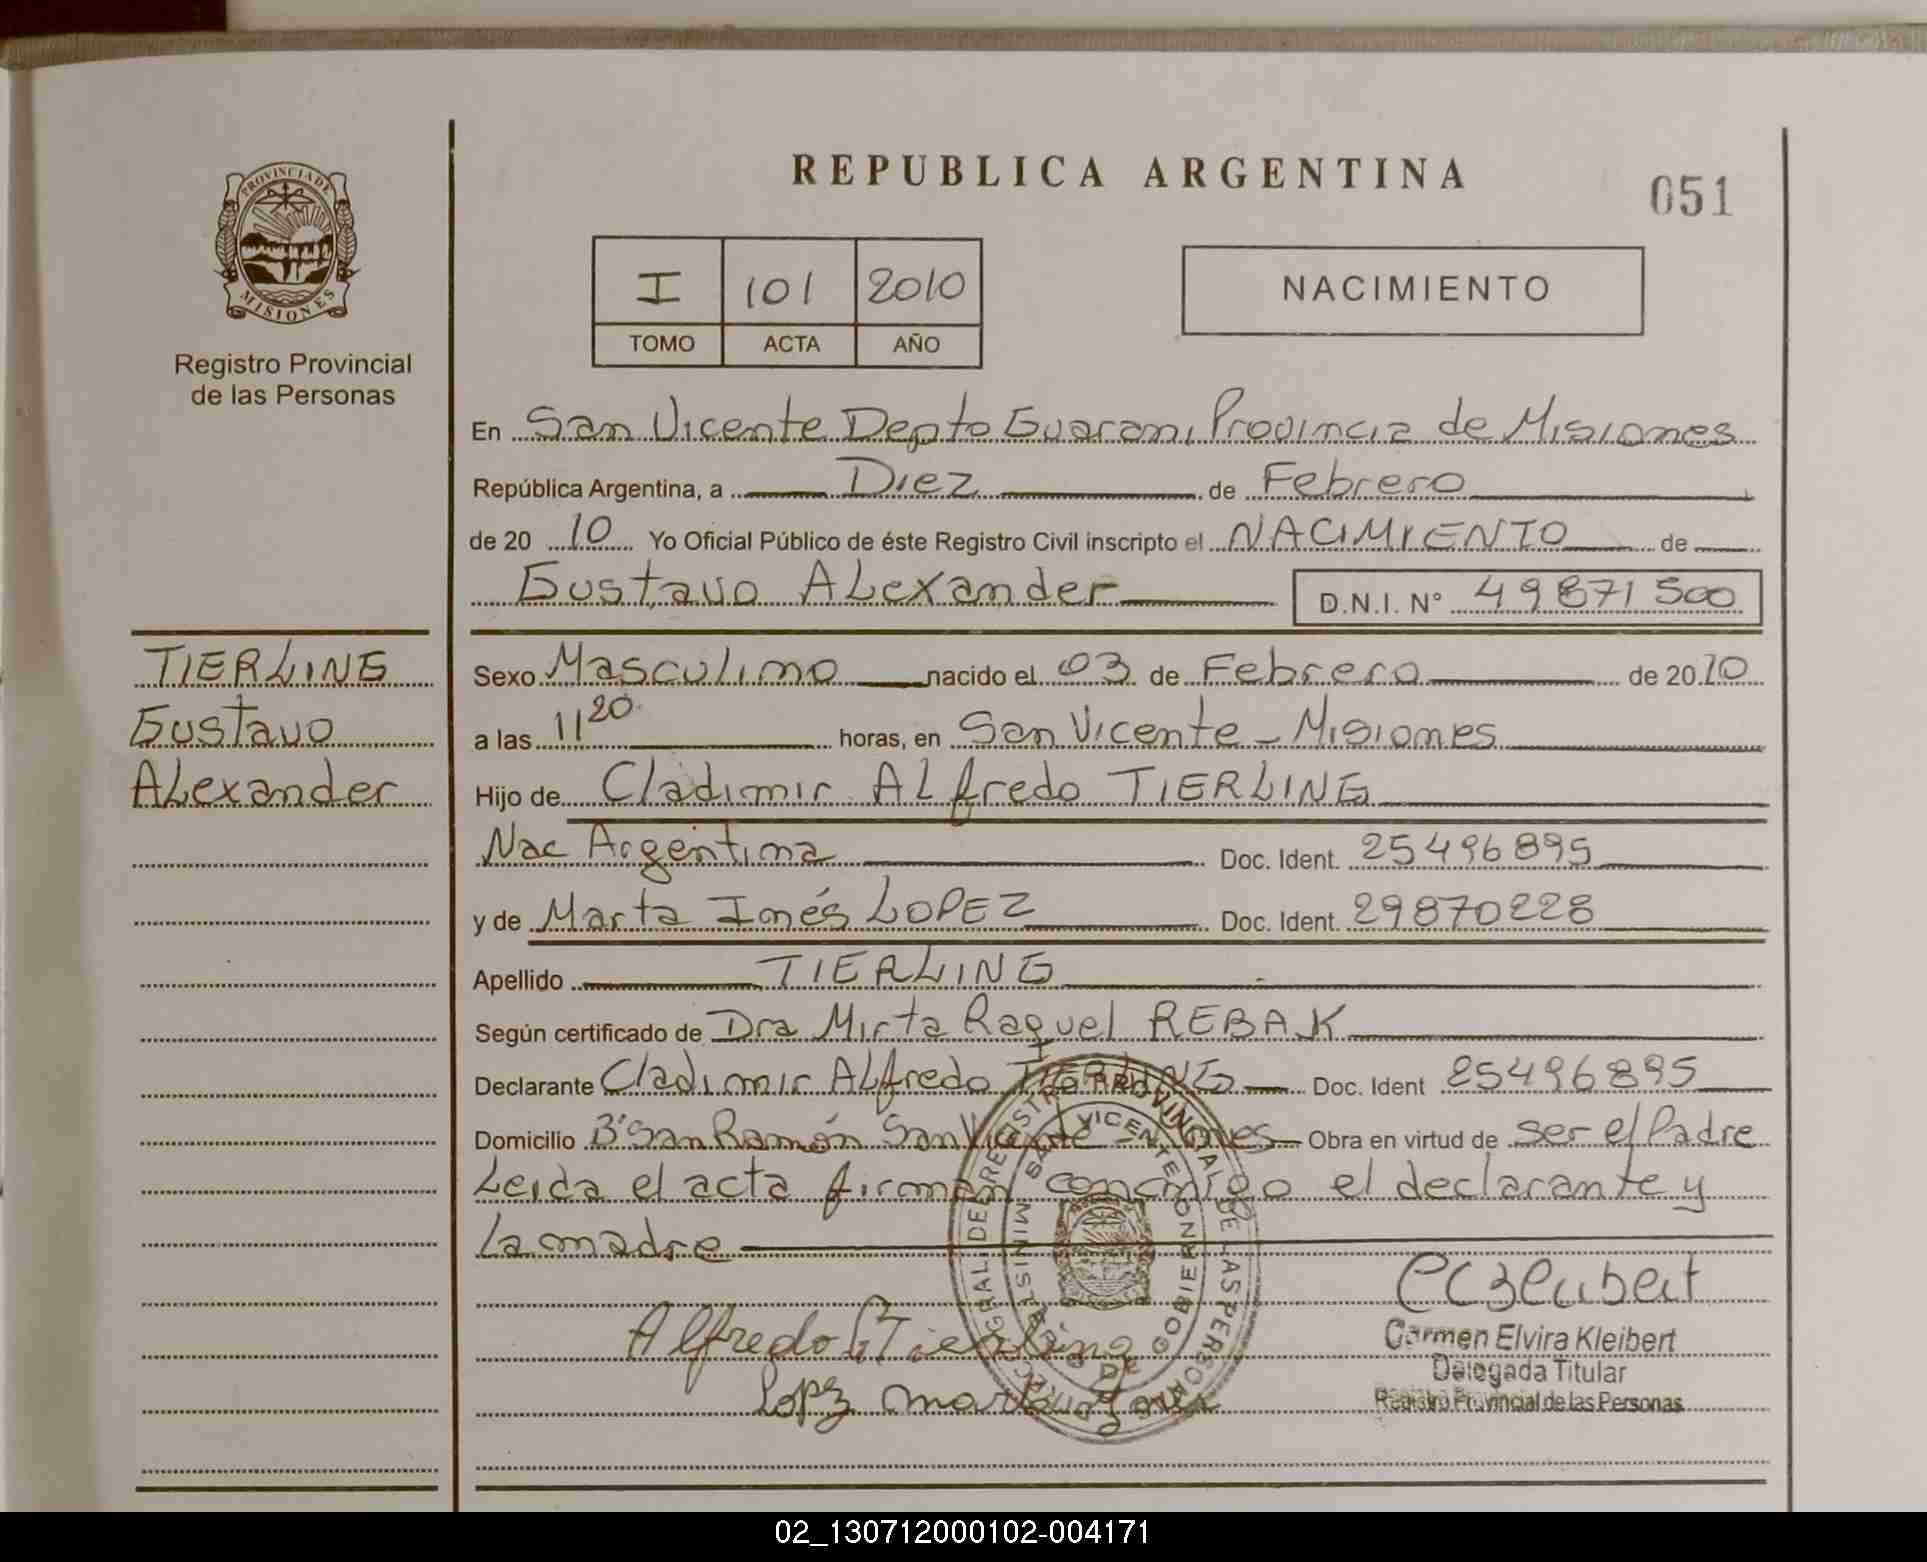 REPUBLICA ARGENTINA
051
PROVINCIA DE
MISIONES
Registro Provincial
de las Personas
I 101 2010
TOMO ACTA AÑO
NACIMIENTO
En San Vicente Depto Guarani Provincia de Misiones
República Argentina, a Diez de Febrero
de 20 10 Yo Oficial Público de éste Registro Civil inscripto el NACIMIENTO de
Gustavo ALexander D.N.I. N° 49871500
TIERLING
Gustavo
ALexander
Sexo Masculino nacido el 03 de Febrero de 20 10
a las 11 20 horas, en San Vicente - Misiones
Hijo de Cladimir ALfredo TIERLING
Nac Argentina Doc. Ident. 25496895
y de Marta Inés LOPEZ Doc. Ident. 29870228
Apellido TIERLING
Según certificado de Dra Mirta Raquel REBAK
Declarante Cladimir ALfredo TIERLING Doc. Ident 25496895
Domicilio B° San Ramón San Vicente - Mnes Obra en virtud de ser el Padre
Leida el acta firman conmigo el declarante y
la madre
DIREC. GRAL. DEL REGISTRO PROVINCIAL DE LAS PERSONAS
SAN VICENTE
MINISTERIO DE GOBIERNO
Alfredo C Tierling
Lopez Marta Ines
Carmen Elvira Kleibert
Delegada Titular
Registro Provincial de las Personas
02_130712000102-004171